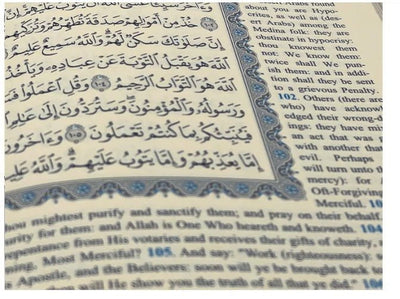 وَءَاخَرَ سَيِّئًا عَسَى ٱللَّهُ أَن يَتُوبَ عَلَيْهِمْ إِنَّ
خُذْ مِنْ أَمْوَٰلِهِمْ صَدَقَةً تُطَهِّرُهُمْ وَتُزَكِّيهِم
إِنَّ صَلَوٰتَكَ سَكَنٌ لَّهُمْ وَٱللَّهُ سَمِيعٌ عَلِيمٌ
ٱللَّهَ هُوَ يَقْبَلُ ٱلتَّوْبَةَ عَنْ عِبَادِهِۦ وَيَأْخُذُ
ٱللَّهَ هُوَ ٱلتَّوَّابُ ٱلرَّحِيمُ ١٠٤ وَقُلِ ٱعْمَلُوا۟
وَرَسُولُهُۥ وَٱلْمُؤْمِنُونَ وَسَتُرَدُّونَ إِلَىٰ عَٰلِمِ
فَيُنَبِّئُكُم بِمَا كُنتُمْ تَعْمَلُونَ ١٠٥ وَءَاخَرُونَ
إِمَّا يُعَذِّبُهُمْ وَإِمَّا يَتُوبُ عَلَيْهِمْ وَٱللَّهُ
Arabs round
about you are Hypo-
crites, as well as (des-
ert Arabs) among the
Medina folk: they are
obstinate in hypocrisy:
thou knowest them
not: We know them:
twice shall We pun-
ish them: and in addi-
tion shall they be sent
a grievous Penalty.
102. Others (there are
who) have acknowl-
edged their wrong-d
ings: they have mix
an act that was g
with another that
evil. Perhaps
will turn unto th
mercy): for
Oft-Forgiving
Merciful. 10
thou mightest purify and sanctify them; and pray on their behalf.
urity for them: and Allah is One Who heareth and knoweth. 104
repentance from His votaries and receives their gifts of charity,
ing, Most Merciful? 105. And say: "Work (righteousness):
Apostle, and the Believers: soon will ye be brought back to
He will show you the truth of all that ye did." 106